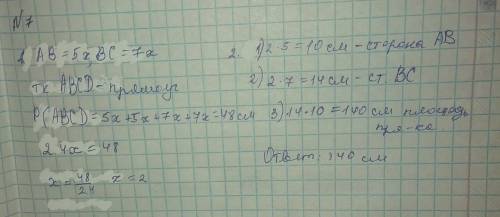 N7
1. AB=5x BC=7x
тк ABCD - прямоуг
P(ABCD)=5x+5x+7x+7x=48см
24x=48
x=48/24 x=2
2. 1) 2·5=10см - сторона AB
2) 2·7=14см - ст BC
3) 14·10=140 см площадь
пря-ка
Ответ: 140 см